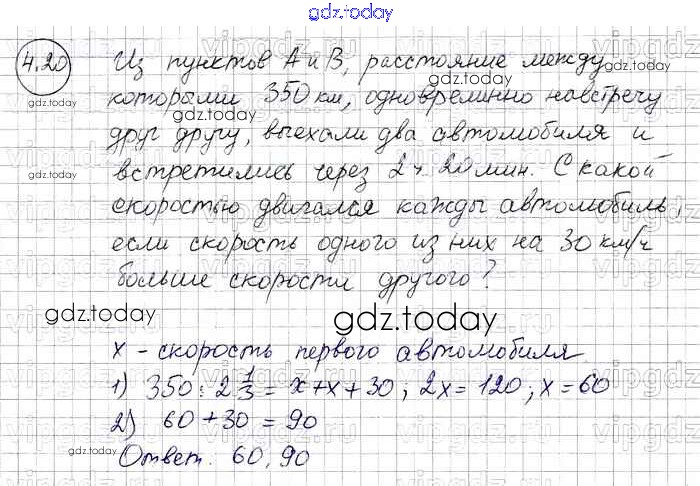 gdz.today
4.20 Из пунктов А и В, расстояние между
которыми 350 км, одновременно навстречу
друг другу, выехали два автомобиля и
встретились через 2 ч. 20 мин. С какой
скоростью двигался кажды автомобиль,
если скорость одного из них на 30 км/ч
больше скорости другого?
x - скорость первого автомобиля
1) 350 : 2 1/3 = x + x + 30; 2x = 120; x = 60
2) 60 + 30 = 90
Ответ. 60, 90